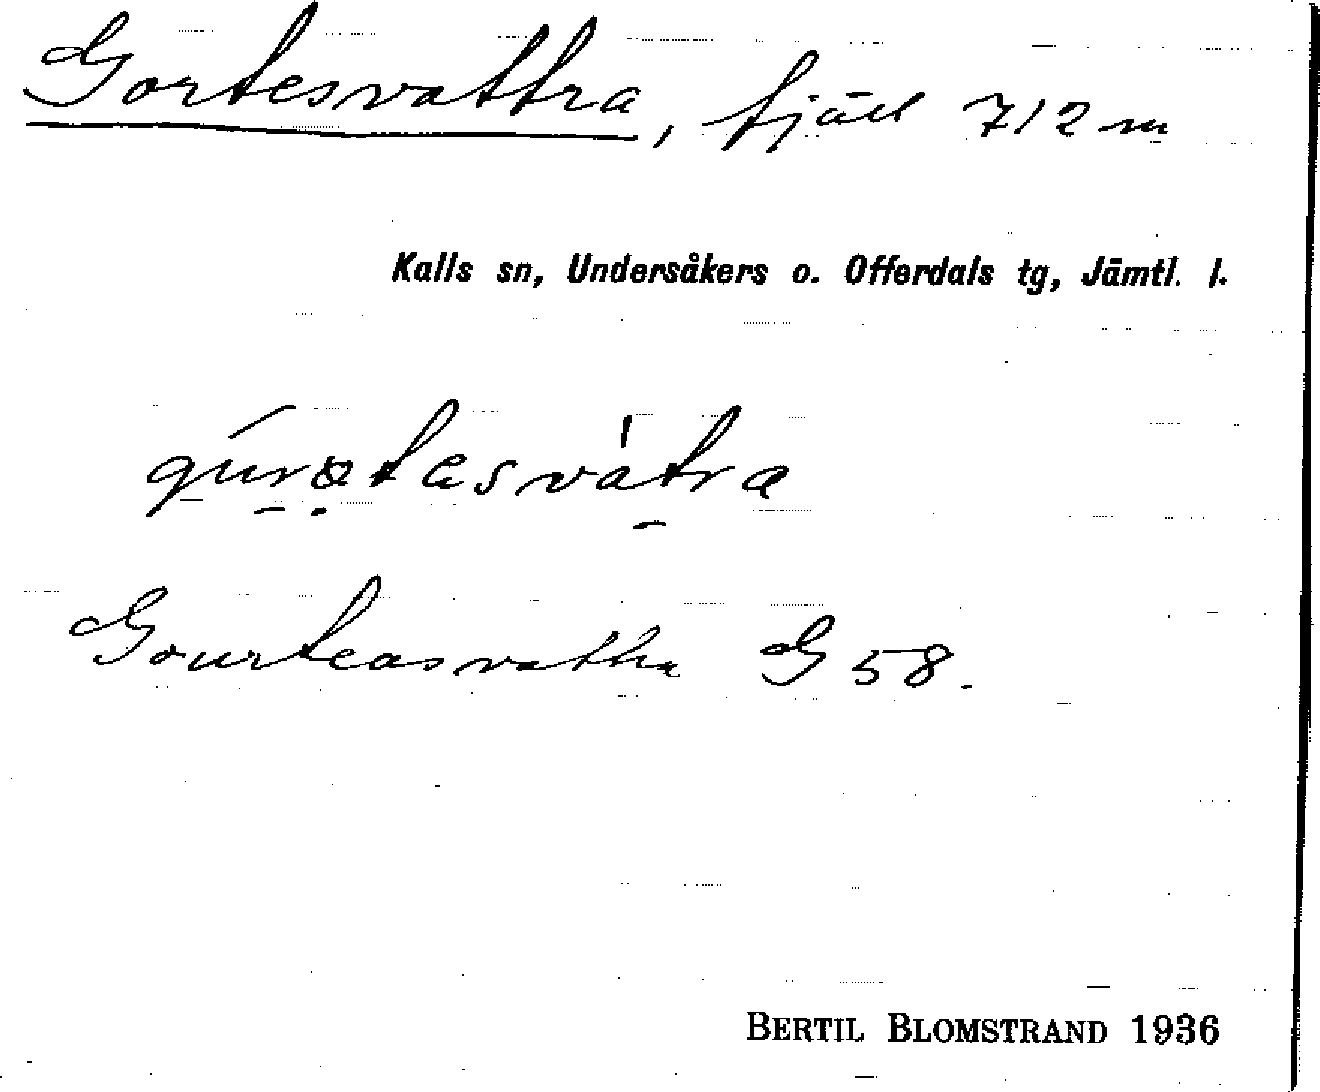 Gortesvattra, fjäll 712 m
Kalls sn, Undersåkers o. Offerdals tg, Jämtl. l.
gúrətesvàtra
Gourteasvattra G 58.
BERTIL BLOMSTRAND 1936